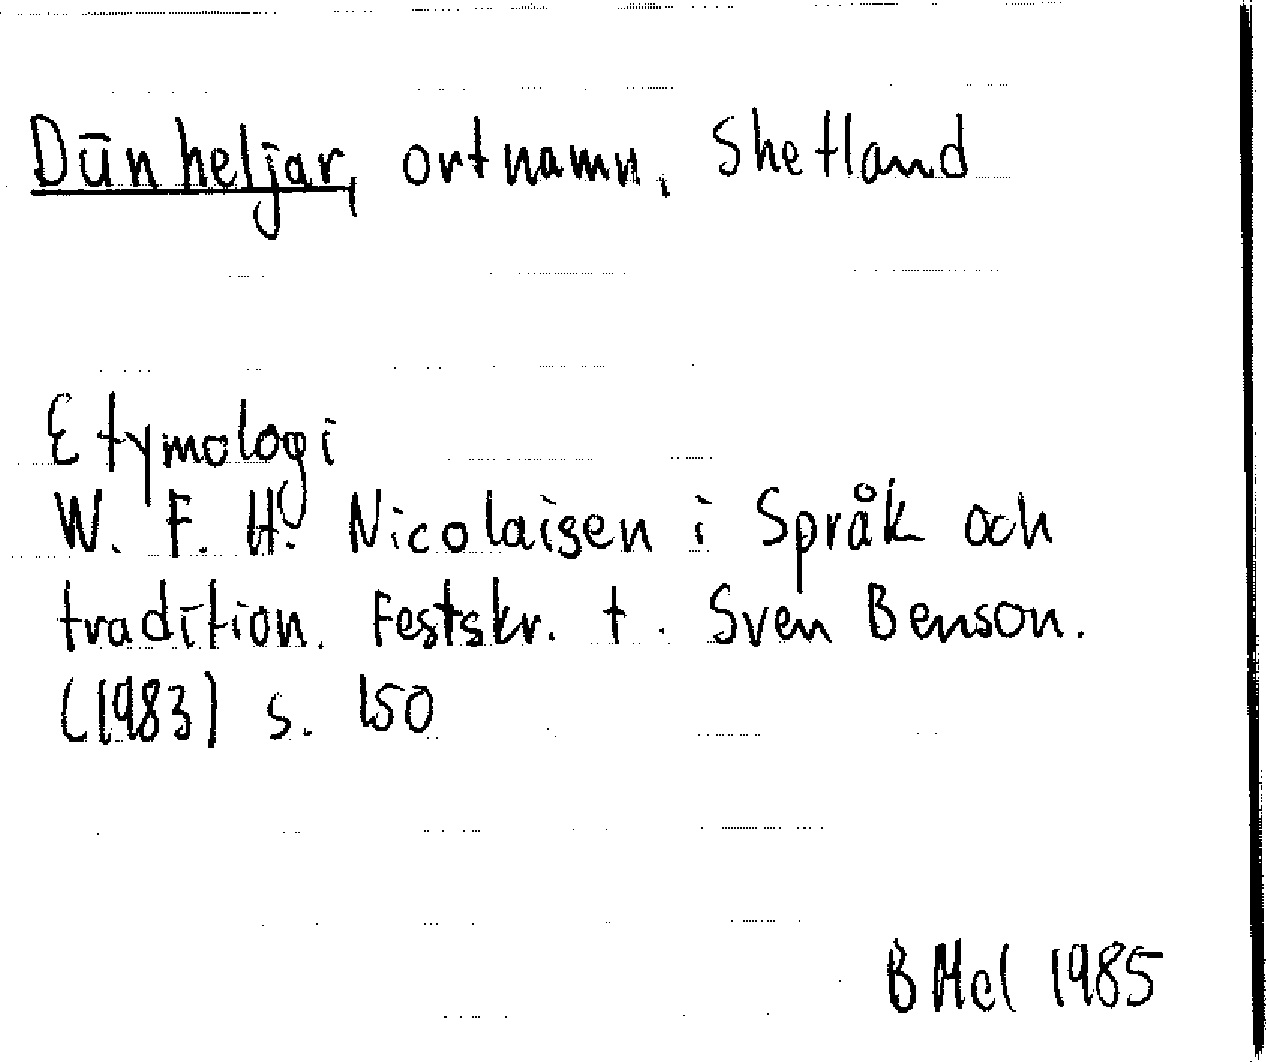 Dūnheljar, ortnamn, Shetland
Etymologi
W. F. H. Nicolaisen i Språk och
tradition. Festskr. t. Sven Benson.
(1983) s. 150
B Hel 1985